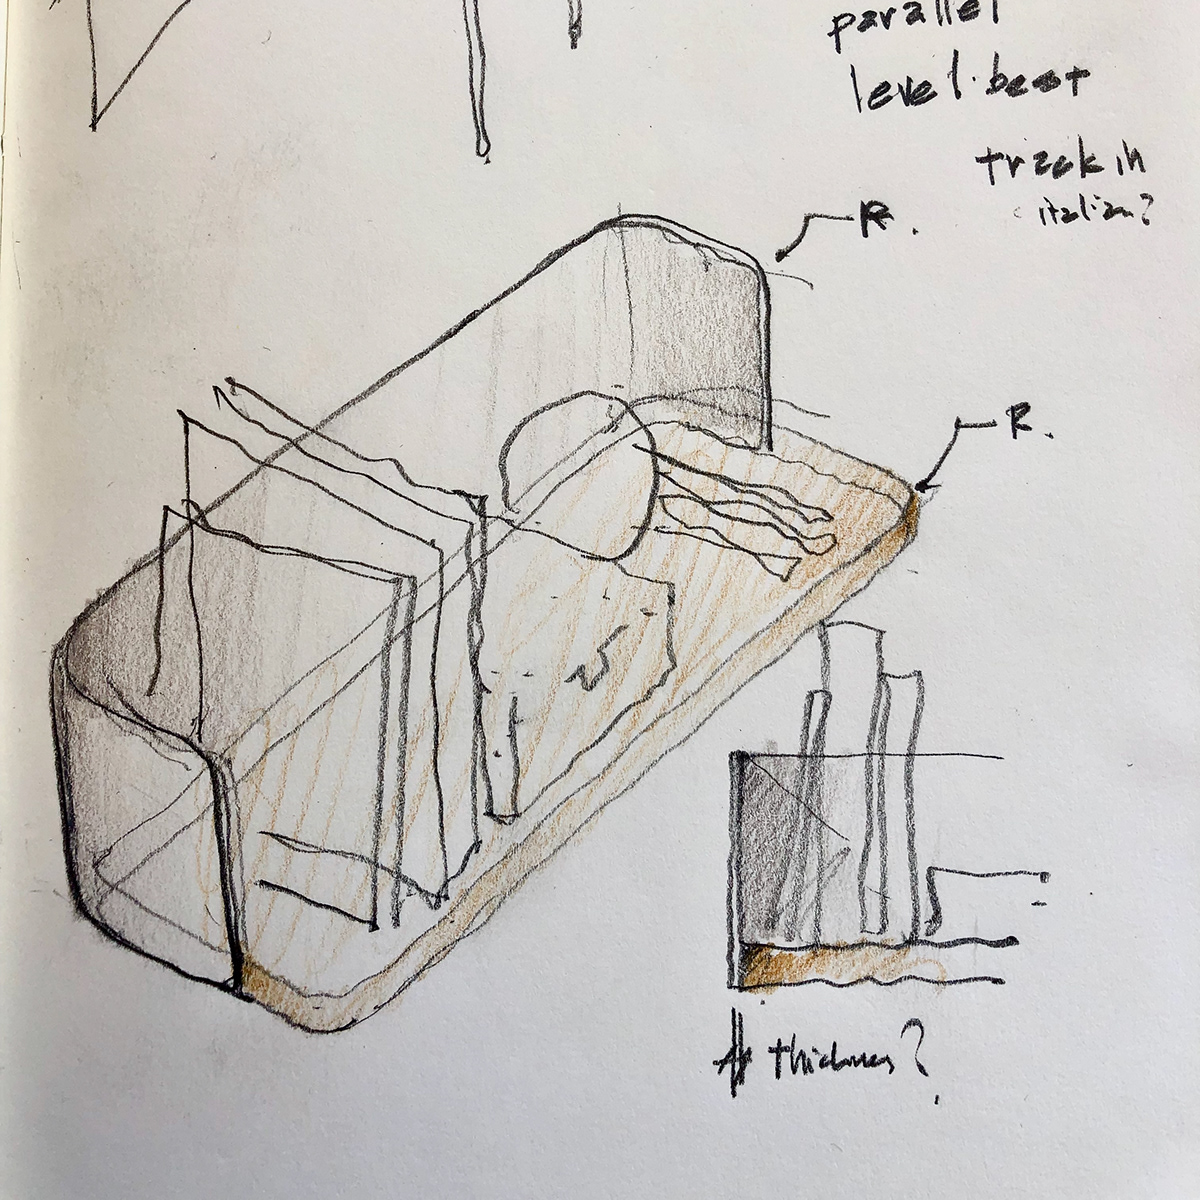 parallel
level.best
track in
italian?
R.
R.
thickness?